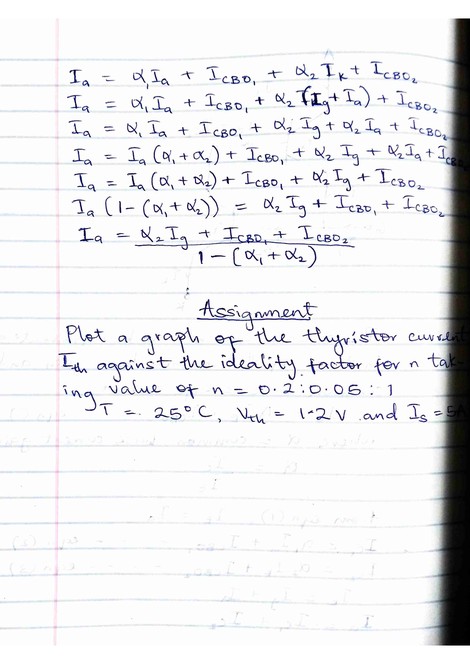 Ia = α1Ia + ICBO1 + α2 IK + ICBO2
Ia = α1Ia + ICBO1 + α2 (Ig + Ia) + ICBO2
Ia = α1 Ia + ICBO1 + α2 Ig + α2 Ia + ICBO2
Ia = Ia (α1 + α2) + ICBO1 + α2 Ig + α2Ia + ICBO
Ia = Ia (α1 + α2) + ICBO1 + α2 Ig + ICBO2
Ia (1 - (α1 + α2)) = α2 Ig + ICBO1 + ICBO2
Ia = α2 Ig + ICBO1 + ICBO2
1 - (α1 + α2)
Assignment
Plot a graph of the thyristor current
Ith against the ideality factor for n tak-
ing value of n = 0.2:0.05:1
T = 25°C, Vth = 1.2 V and Is = 5